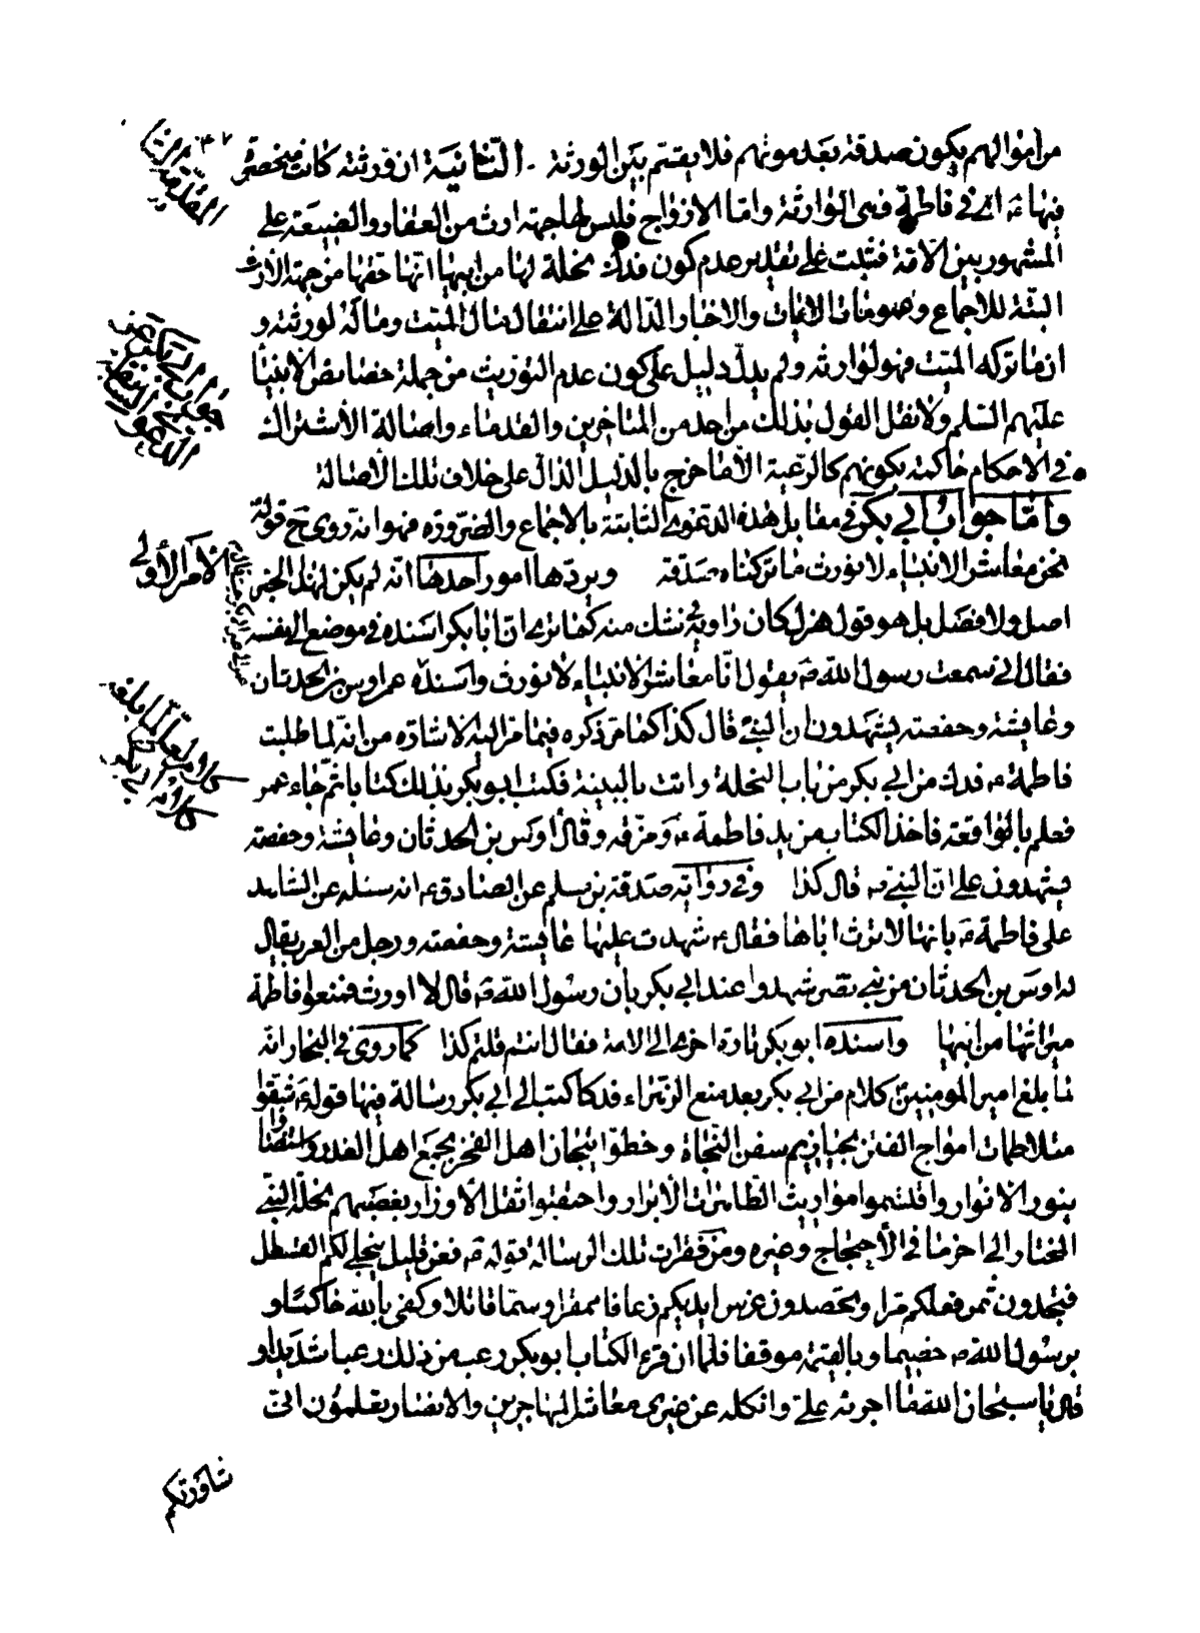 من اموالهم يكون صدقة بعد موتهم فلا يقسّم بين الورثة ۔ الثّانيَة ان ورثته كانت منحصرة
فيها ع اى فى فاطمة فهى الوارثة وامّا الازواج فليس لها جهة ارث من العقار والضيعَة على
المشهور بين الامّة فثبت على تقدير عدم كون فدك نحلة لها من ابيها انّها حقّها من جهة الارث
البتّة للاجماع وعمومات الايات والاخبار الدّالة على انتقال مال الميّت وما له لورثته و
ان ما تركه الميّت فهو لوارثه ولم يدلّ دليل على كون عدم التوريث من جملة خصايص الانبيآ
عليهم السّلم ولا نقل القول بذلك من احد من المتأخرين والقدماء واصالة الاشتراك
فى الاحكام حاكمة بكونهم كالرّعية الّا ما خرج بالدّليل الدّالّ على خلاف تلك الاصالة
وامّا جواب ابى بكر فى مقابل هذه الدّعوى الثّابتة بالاجماع والضّرورة فهو انّه روى ح قوله
نحن معاشر الانبياء لا نورث ما تركناه صدقة ويردّها امور احدها انّه لم يكن لهذا الخبر
اصل ولا فصل بل هو قول هزل كان راويه فى شك منه كما ترى انّ ابا بكر اسنده فى موضع الى نفسه
فقال انّى سمعت رسول اللّه ص يقول انّا معاشر الانبياء لا نورث واسنده عمر اوس بن الحدثان
وعايشة وحفصة يشهدون ان النبىّ قال كذا كما مرّ ذكره فيما مرّ اليه الاشارة من انّه لمّا طلبت
فاطمة ع فدك من ابى بكر من باب النحلة واتت بالبيّنة فكتب ابو بكر بذلك كتابا ثمّ جاء عمر
فعلم بالواقعة فاخذ الكتاب من يد فاطمة ع ومزّقه وقال اوس بن الحدثان وعايشة وحفصة
يشهدون على انّ النبىّ ص قال كذا وفى رواية صدقة بن مسلم عن الصّادق ع انه سئله عن الشّاهد
على فاطمة ع بانها لا ترث اباها فقال ع شهدت عليها عايشة وحفصة ورجل من العرب يقال
له اوس بن الحدثان من بنى نصر شهدوا عند ابى بكر بان رسول اللّه ص قال لا اورث فمنعوا فاطمة
ميراثها من ابيها واسنده ابو بكر تارة اخرى الى الامة فقال انتم قلتم كذا كما روى فى البحار انّه
لمّا بلغ امير المؤمنين كلام من ابى بكر بعد منع الزّهراء فدكا كتب الى ابى بكر رسالة فيها قوله ع شقّوا
متلاطمات امواج الفتن بحيازيم سفن النّجاة وحطّوا تيجان اهل الفخر بجمع اهل الغدر واستضاؤا
بنور الانوار واقتسموا مواريث الطّاهرات الابرار واحتقبوا ثقل الاوزار بغصبهم نحلة النبىّ
المختار الى اخر ما فى الاحتجاج وغيره ومن فقرات تلك الرسالة قوله ع فعن قليل ينجلى لكم القسطل
فتجدون ثمر فعلكم مرّا وتحصدون غرس ايديكم زعافا ممقرا وسمّا قاتلا وكفى باللّه حاكمًا و
برسول اللّه ص خصيما وبالقيمة موقفا فلمّا ان قرء الكتاب ابو بكر رعب من ذلك رعبا شديدا و
قال يا سبحان اللّه ما اجرئه علىّ وانكله عن غيرى معاشر المهاجرين والانصار تعلمون انّى
شاورتكم